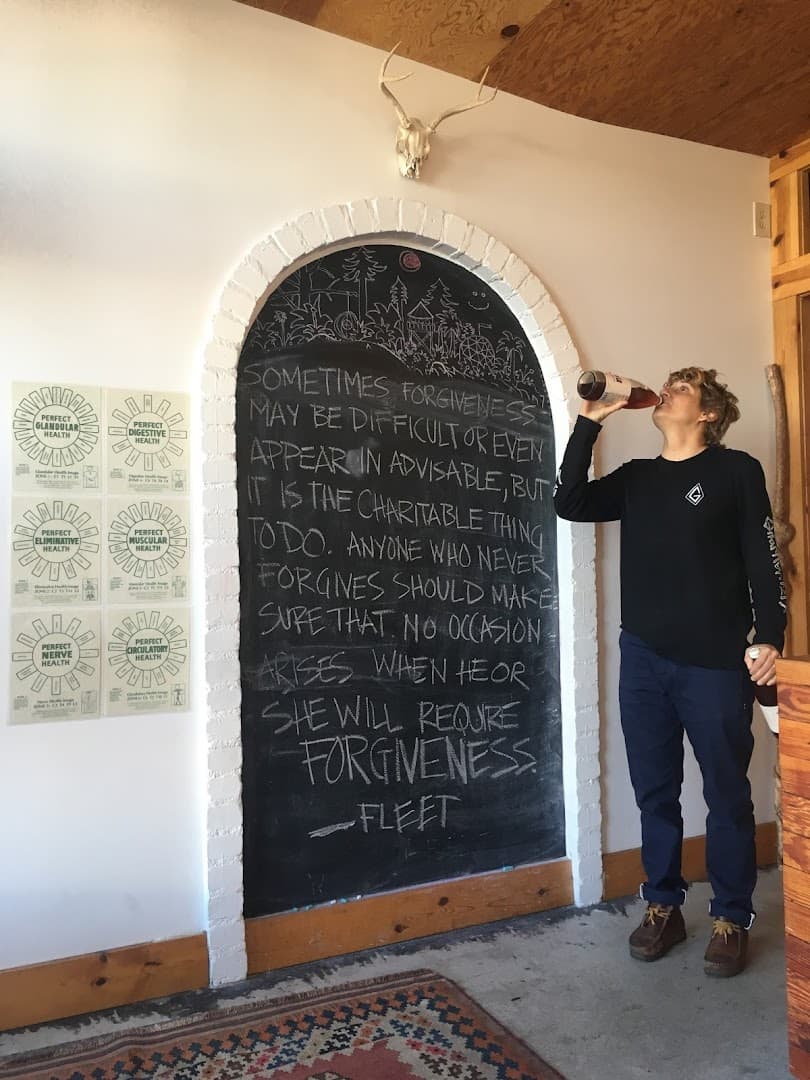 SOMETIMES FORGIVENESS
MAY BE DIFFICULT OR EVEN
APPEAR IN ADVISABLE, BUT
IT IS THE CHARITABLE THING
TO DO. ANYONE WHO NEVER
FORGIVES SHOULD MAKE
SURE THAT NO OCCASION
ARISES WHEN HE OR
SHE WILL REQUIRE
FORGIVENESS.
—FLEET
PERFECT
GLANDULAR
HEALTH
PERFECT
DIGESTIVE
HEALTH
PERFECT
ELIMINATIVE
HEALTH
PERFECT
MUSCULAR
HEALTH
PERFECT
NERVE
HEALTH
PERFECT
CIRCULATORY
HEALTH
G